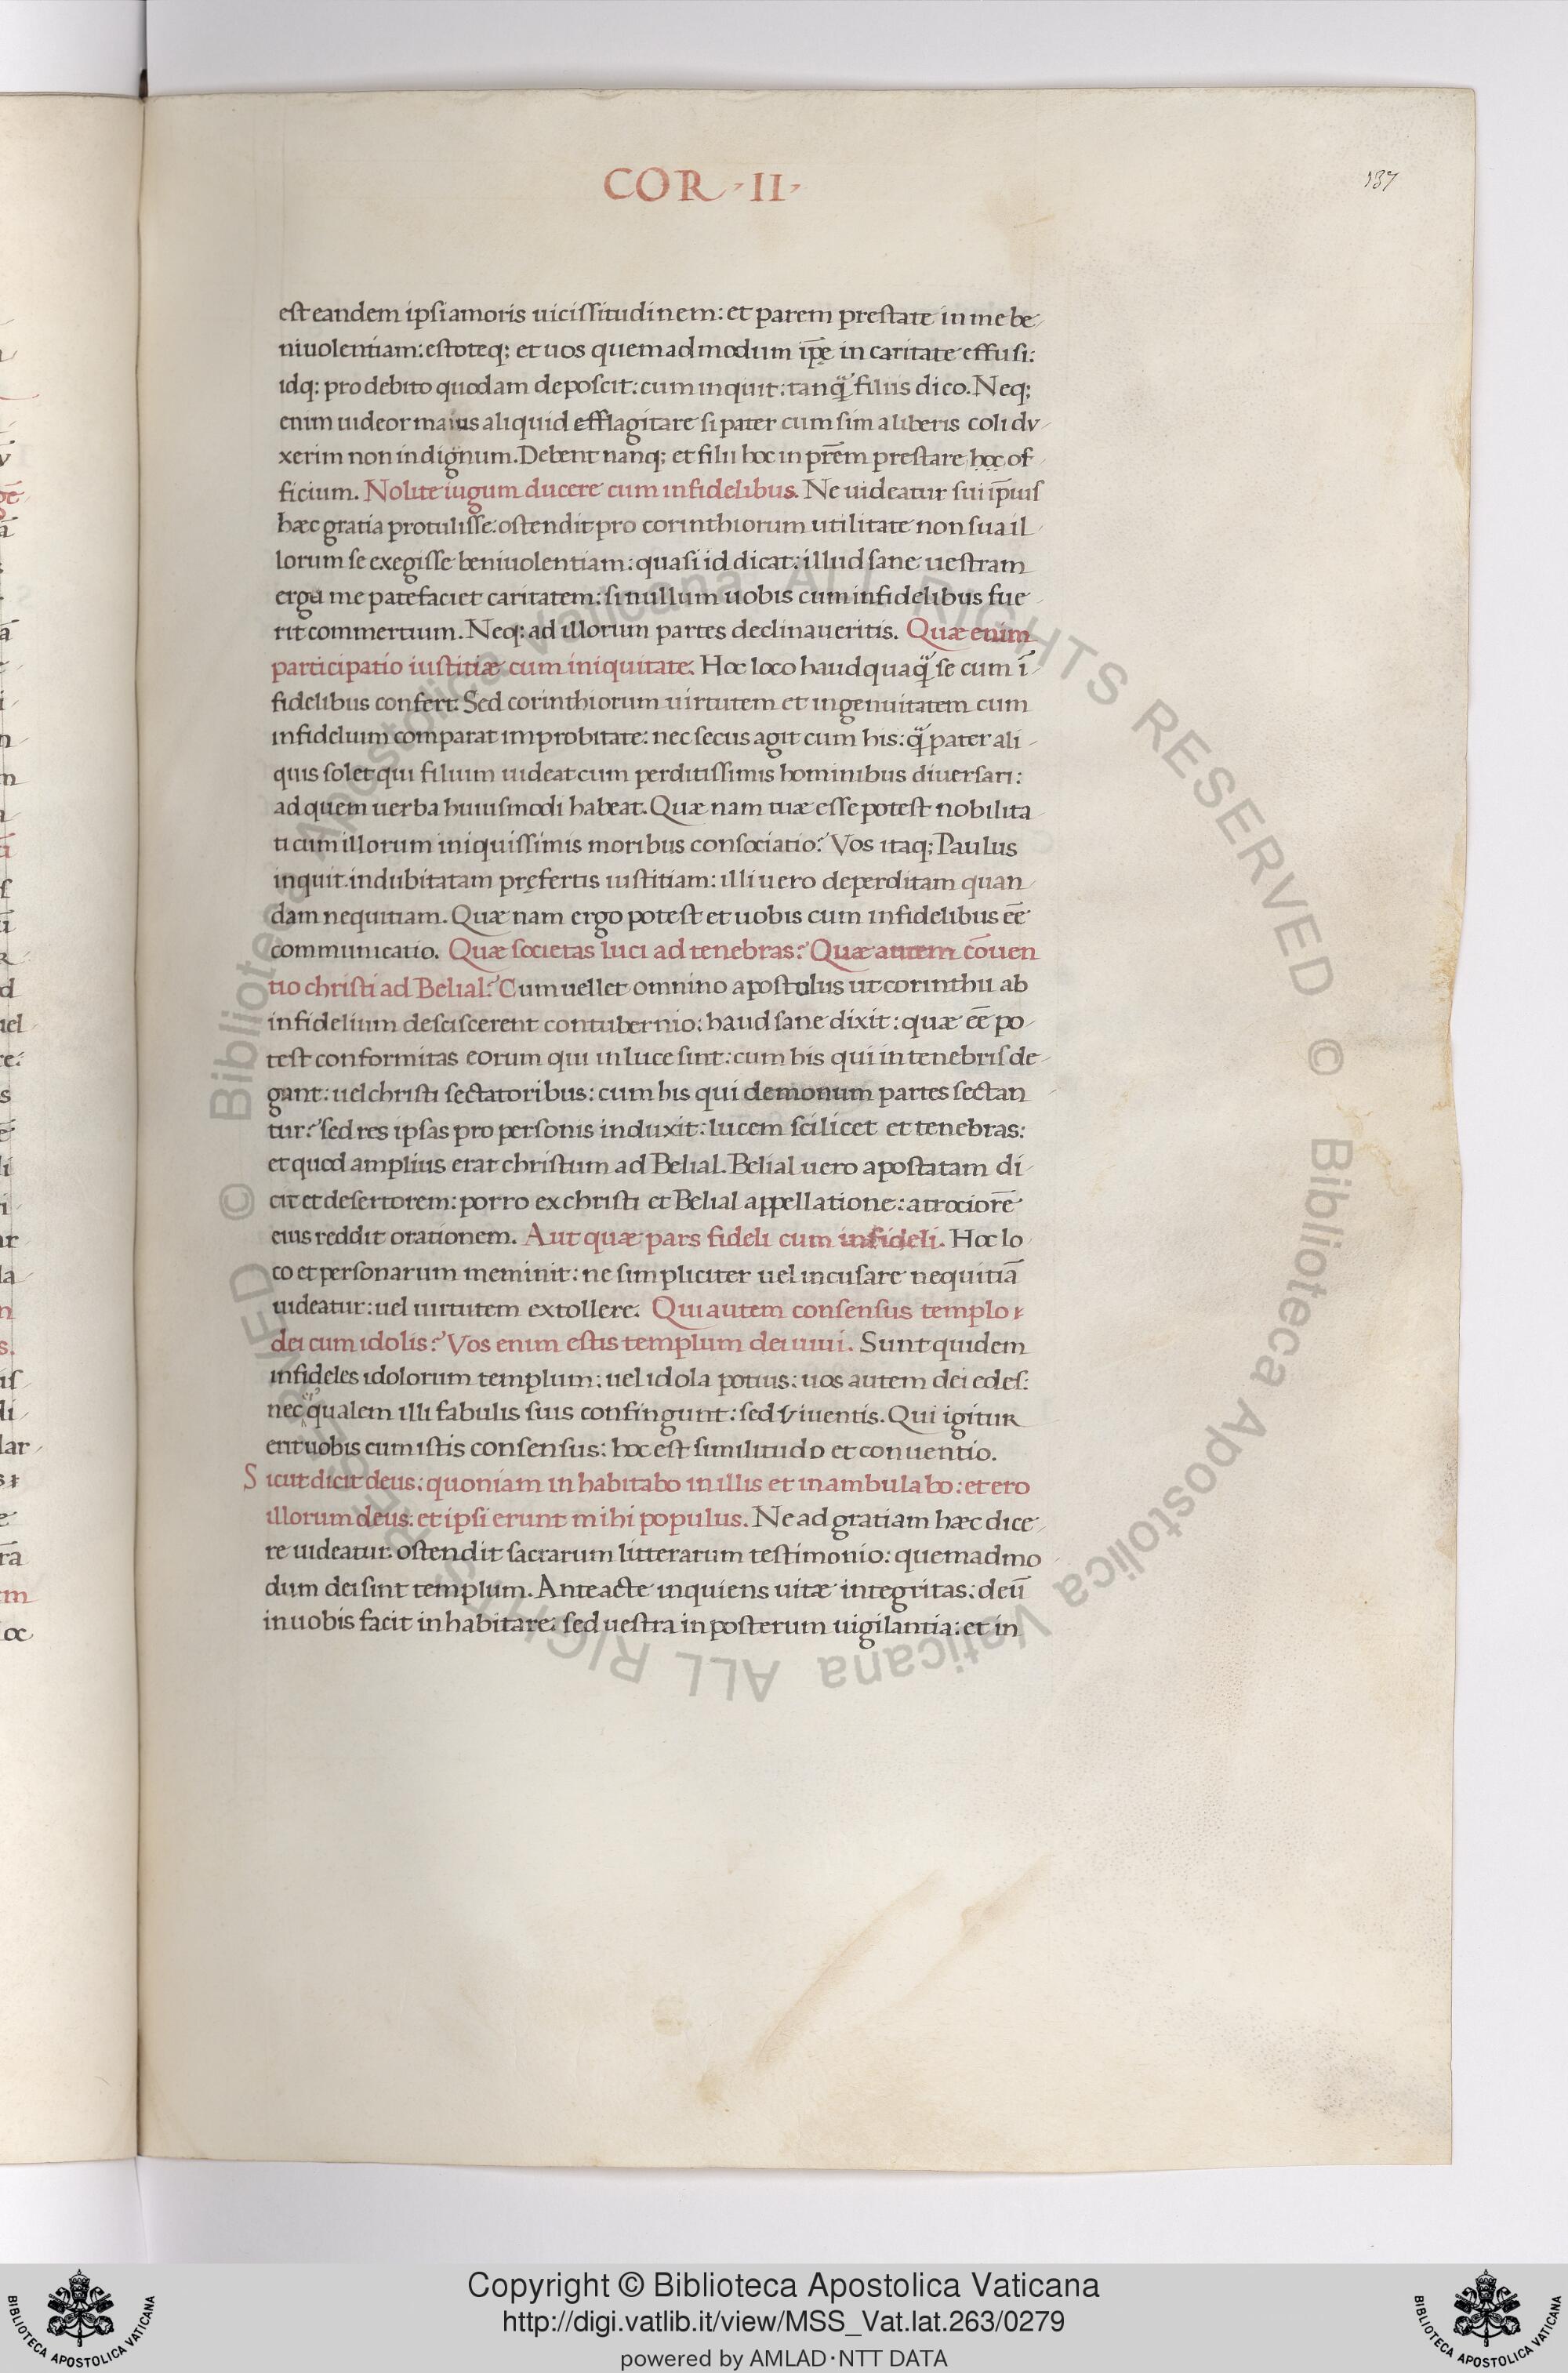 COR · II ·
137
est eandem ipsi amoris uicissitudinem: et parem prestate in me be
niuolentiam: estoteq; et uos quemadmodum ip̄e in caritate effusi:
idq; pro debito quodam deposcit: cum inquit: tanq̃ filiis dico. Neq;
enim uideor maius aliquid efflagitare si pater cum sim a liberis coli du
xerim non indignum. Debent nanq; et filii hoc in prēm prestare hoc of
ficium. Nolite iugum ducere cum infidelibus. Ne uideatur sui ip̄ius
hæc gratia protulisse: ostendit pro corinthiorum utilitate non sua il
lorum se exegisse beniuolentiam: quasi id dicat: illud sane uestram
erga me patefaciet caritatem: si nullum uobis cum infidelibus fue
rit commertium. Neq; ad illorum partes declinaueritis. Quæ enim
participatio iustitiæ cum iniquitate. Hoc loco haudquaq̃ se cum ī
fidelibus confert: Sed corinthiorum uirtutem et ingenuitatem cum
infidelium comparat improbitate: nec secus agit cum his: q̃ pater ali
quis solet qui filium uideat cum perditissimis hominibus diuersari:
ad quem uerba huiusmodi habeat. Quæ nam tuæ esse potest nobilita
ti cum illorum iniquissimis moribus consociatio? Vos itaq; Paulus
inquit indubitatam prefertis iustitiam: illi uero deperditam quan
dam nequitiam. Quæ nam ergo potest et uobis cum infidelibus eē
communicatio. Quæ societas luci ad tenebras? Quæ autem cōuen
tio christi ad Belial? Cum uellet omnino apostolus ut corinthii ab
infidelium desciscerent contubernio: haud sane dixit: quæ eē po
test conformitas eorum qui in luce sint: cum his qui in tenebris de
gant: uel christi sectatoribus: cum his qui demonum partes sectan
tur? sed res ipsas pro personis induxit: lucem scilicet et tenebras:
et quod amplius erat christum ad Belial. Belial uero apostatam di
cit et desertorem: porro ex christi et Belial appellatione: atrociorē
eius reddit orationem. Aut quæ pars fideli cum infideli. Hoc lo
co et personarum meminit: ne simpliciter uel incusare nequitiā
uideatur: uel uirtutem extollere. Qui autem consensus templo
dei cum idolis? Vos enim estis templum dei uiui. Sunt quidem
infideles idolorum templum: uel idola potius: uos autem dei edes:
nec qualem illi fabulis suis confingunt: sed viuentis. Qui igitur
erit uobis cum istis consensus: hoc est similitudo et conuentio.
Sicut dicit deus: quoniam inhabitabo in illis et inambulabo: et ero
illorum deus: et ipsi erunt mihi populus. Ne ad gratiam hæc dice
re uideatur ostendit sacrarum litterarum testimonio: quemadmo
dum dei sint templum. Anteacte inquiens uitæ integritas: deū
in uobis facit inhabitare: sed uestra in posterum uigilantia: et in
© Biblioteca Apostolica Vaticana ALL RIGHTS RESERVED © Biblioteca Apostolica Vaticana ALL RIGHTS RESERVED
Copyright © Biblioteca Apostolica Vaticana
http://digi.vatlib.it/view/MSS_Vat.lat.263/0279
powered by AMLAD·NTT DATA
BIBLIOTECA APOSTOLICA VATICANA
BIBLIOTECA APOSTOLICA VATICANA